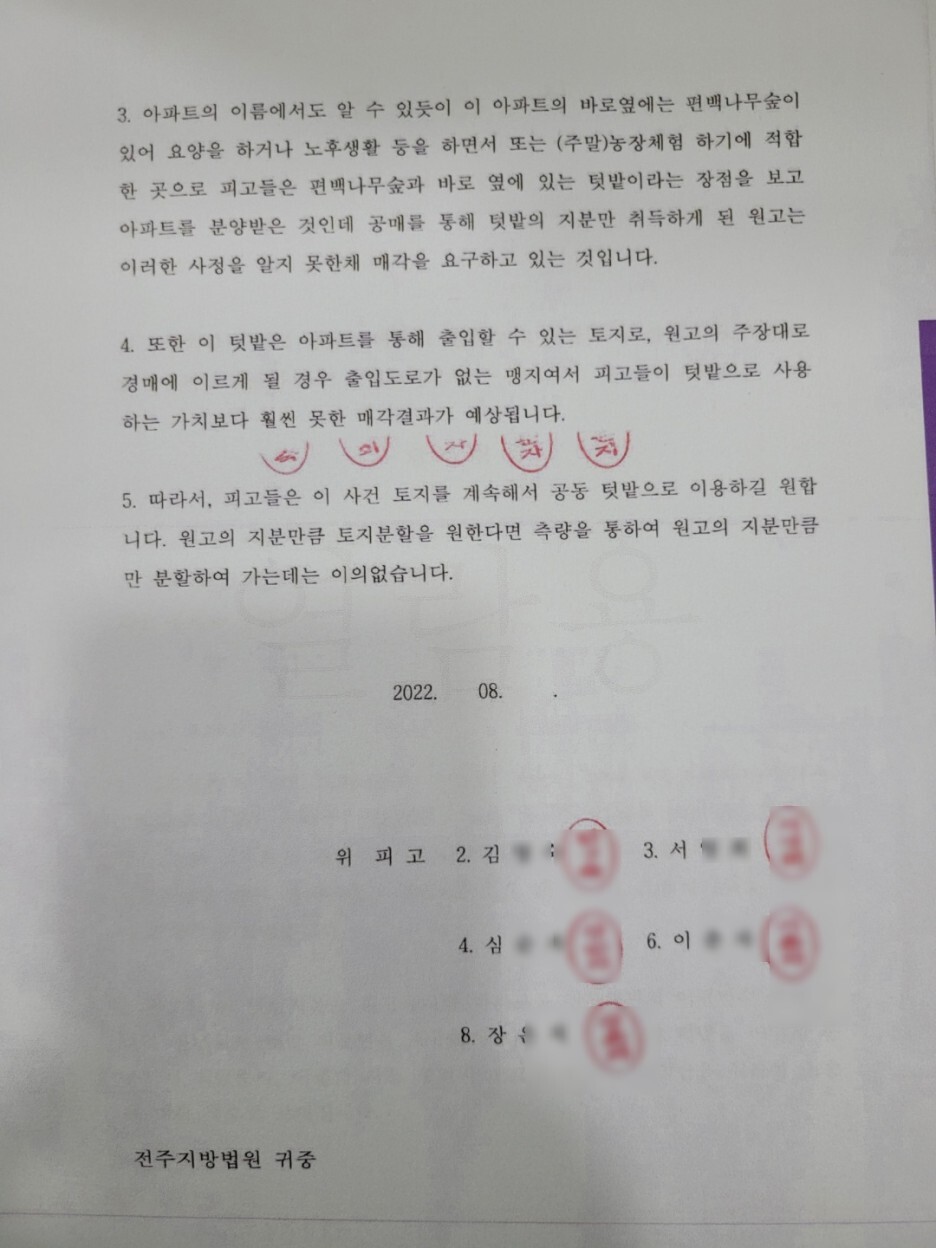 3. 아파트의 이름에서도 알 수 있듯이 이 아파트의 바로옆에는 편백나무숲이
있어 요양을 하거나 노후생활 등을 하면서 또는 (주말)농장체험 하기에 적합
한 곳으로 피고들은 편백나무숲과 바로 옆에 있는 텃밭이라는 장점을 보고
아파트를 분양받은 것인데 공매를 통해 텃밭의 지분만 취득하게 된 원고는
이러한 사정을 알지 못한채 매각을 요구하고 있는 것입니다.
4. 또한 이 텃밭은 아파트를 통해 출입할 수 있는 토지로, 원고의 주장대로
경매에 이르게 될 경우 출입도로가 없는 맹지여서 피고들이 텃밭으로 사용
하는 가치보다 훨씬 못한 매각결과가 예상됩니다.
5. 따라서, 피고들은 이 사건 토지를 계속해서 공동 텃밭으로 이용하길 원합
니다. 원고의 지분만큼 토지분할을 원한다면 측량을 통하여 원고의 지분만큼
만 분할하여 가는데는 이의없습니다.
열람용
2022. 08. .
위 피고 2. 김 3. 서
4. 심 6. 이
8. 장
전주지방법원 귀중